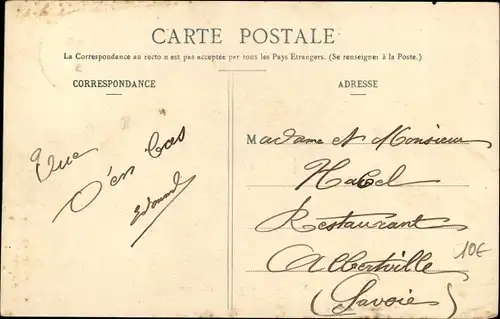 CARTE POSTALE
La Correspondance au recto n'est pas acceptée par tous les Pays Etrangers. (Se renseigner à la Poste.)
CORRESPONDANCE
Vue
d'en bas
Edouard
ADRESSE
Madame et Monsieur
Habel
Restaurant
Albertville
(Savoie)
10€